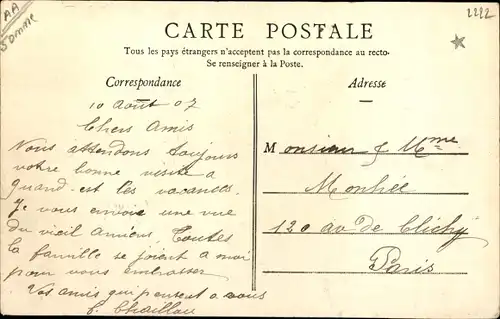 AA
Somme
2222
CARTE POSTALE
Tous les pays étrangers n'acceptent pas la correspondance au recto-
Se renseigner à la Poste.
Correspondance
Adresse
10 Août 07
Chers Amis
Nous attendons toujours
votre bonne visite a
quand est les vacances.
Je vous envoie une vue
du vieil Amiens, Toutes
la famille se joient a moi
pour vous embrasser
Vos amis qui pensent a vous
Monsieur & Mme
120 av de Clichy
Paris